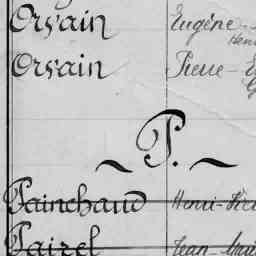 Orvain Eugène-
Henri
Orvain Pierre-E
~ P. ~
Painchaud Henri-
Pairel Jean-